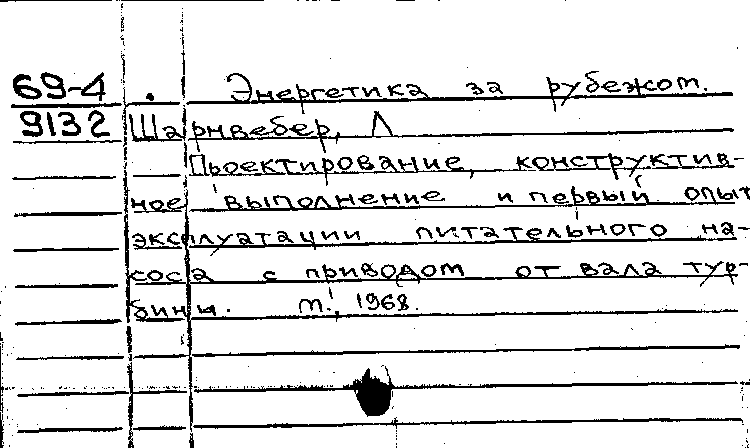 69-4 . Энергетика за рубежом.
9132 Шарнвебер, Л
Проектирование, конструктив-
ное выполнение и первый опыт
эксплуатации питательного на-
соса с приводом от вала тур-
бины. М., 1968.